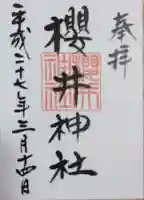 奉拝
櫻井神社
平成二十七年三月十四日